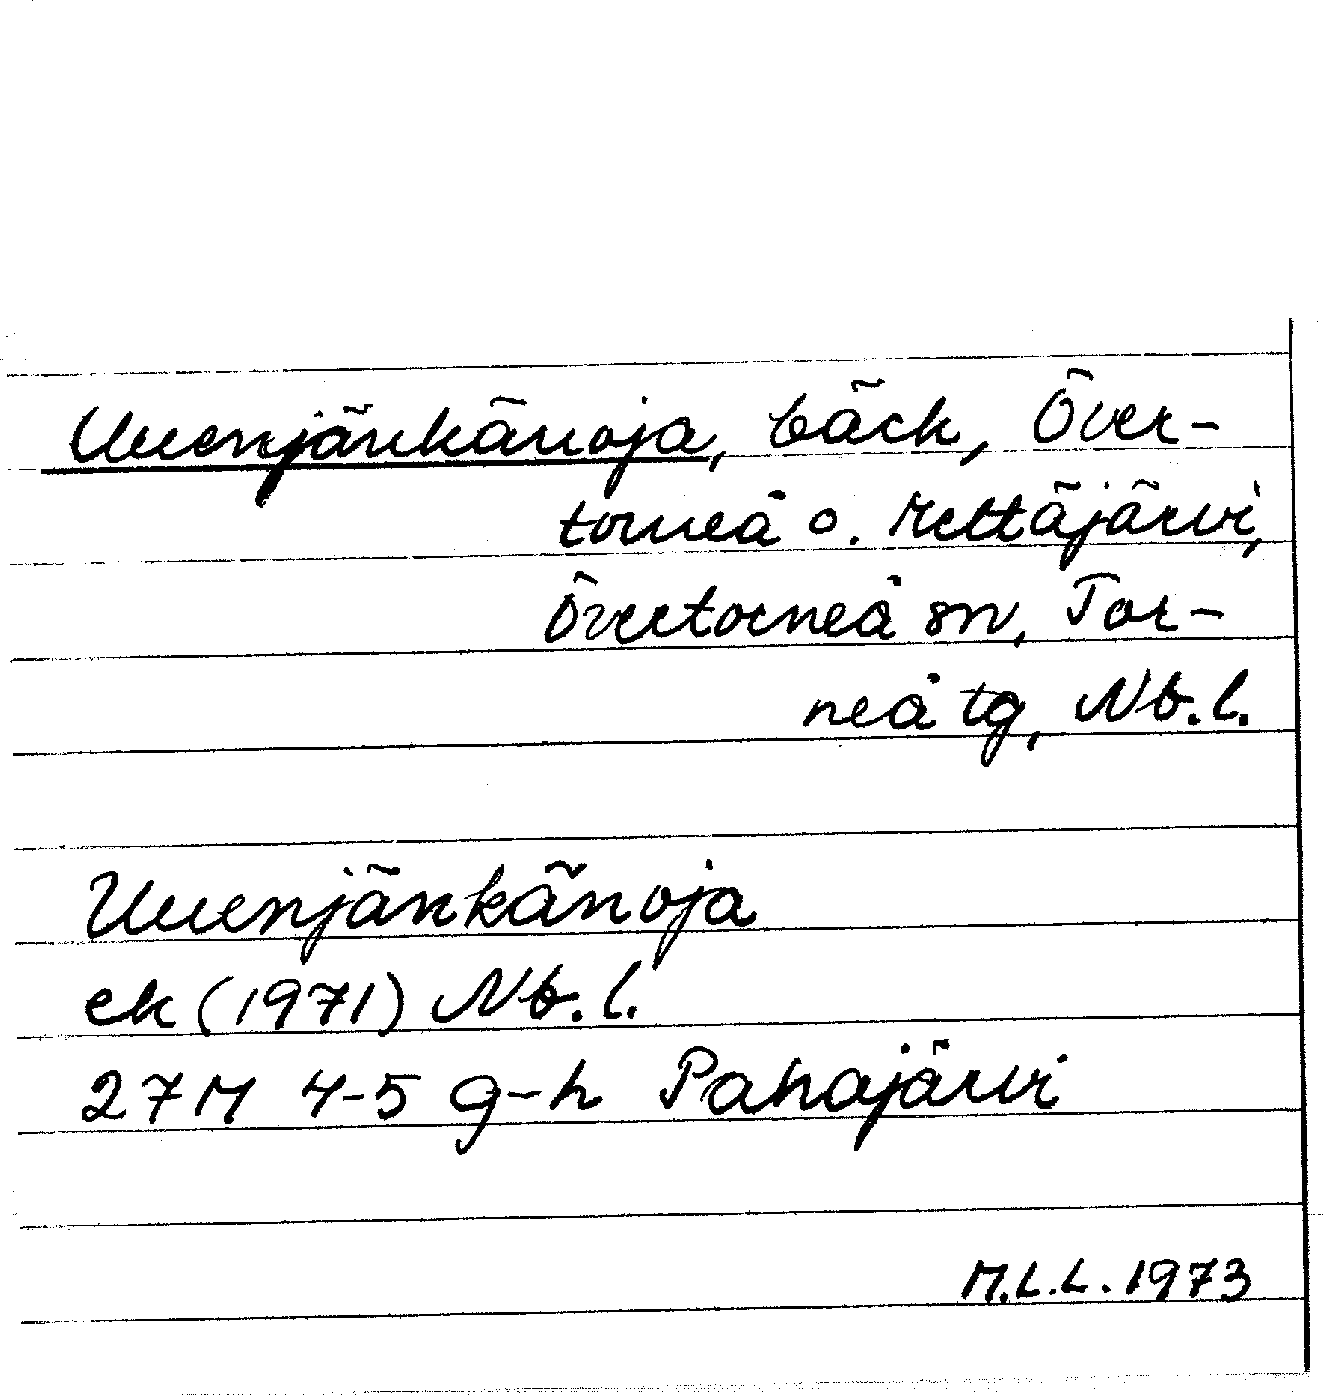 Uuenjänkänoja, bäck, Över-
torneå o. Mettäjärvi,
Övertorneå sn, Tor-
neå tg, Nb.l.
Uuenjänkänoja
ek (1971) Nb.l.
27M 4-5 g-h Pahajärvi
M.L.L. 1973